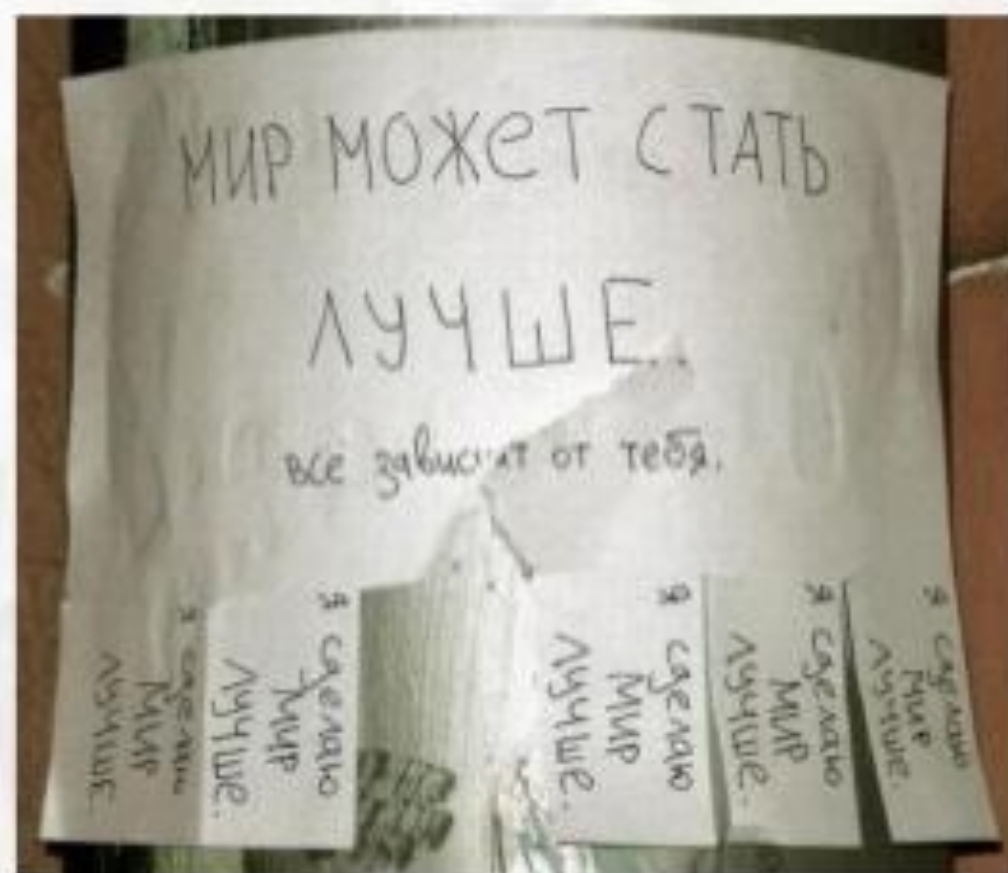 МИР МОЖЕТ СТАТЬ
ЛУЧШЕ.
все зависит от тебя.
я сделаю
МИР
ЛУЧШЕ.
я сделаю
МИР
ЛУЧШЕ.
я сделаю
МИР
ЛУЧШЕ.
я сделаю
МИР
ЛУЧШЕ.
я сделаю
МИР
ЛУЧШЕ.